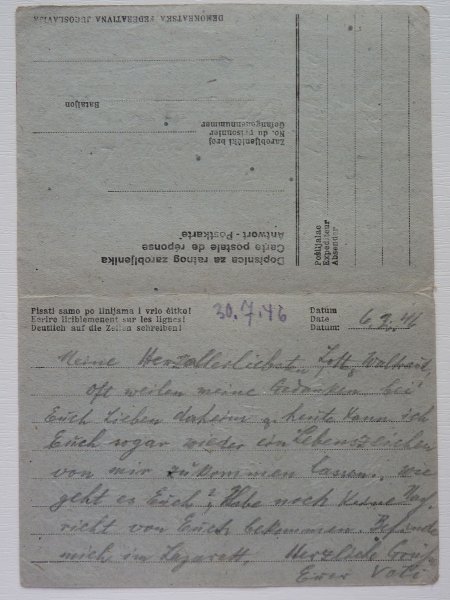 DEMOKRATSKA FEDERATIVNA JUGOSLAVIJA
Dopisnica za ratnog zarobljenika
Carte postale de réponse
Antwort - Postkarte
Zarobljenički broj
No. du prisonnier
Gefangenennummer
Bataljon
Pošiljalac
Expéditeur
Absender
Pisati samo po linijama i vrlo čitko!
Ecrire liciblemenent sur les lignes!
Deutlich auf die Zeilen schreiben!
30.7.46
Datum
Date
Datum:
46
Meine Herzallerliebsten, Lott, Waltraut,
Oft weilen meine Gedanken bei
Euch Lieben daheim u. heute kann ich
Euch sogar wieder ein Lebenszeichen
von mir zukommen lassen, wie
geht es Euch? Habe noch keine Nach-
richt von Euch bekommen. Befinde
mich im Lazarett. Herzliche Grüße
Euer Vati